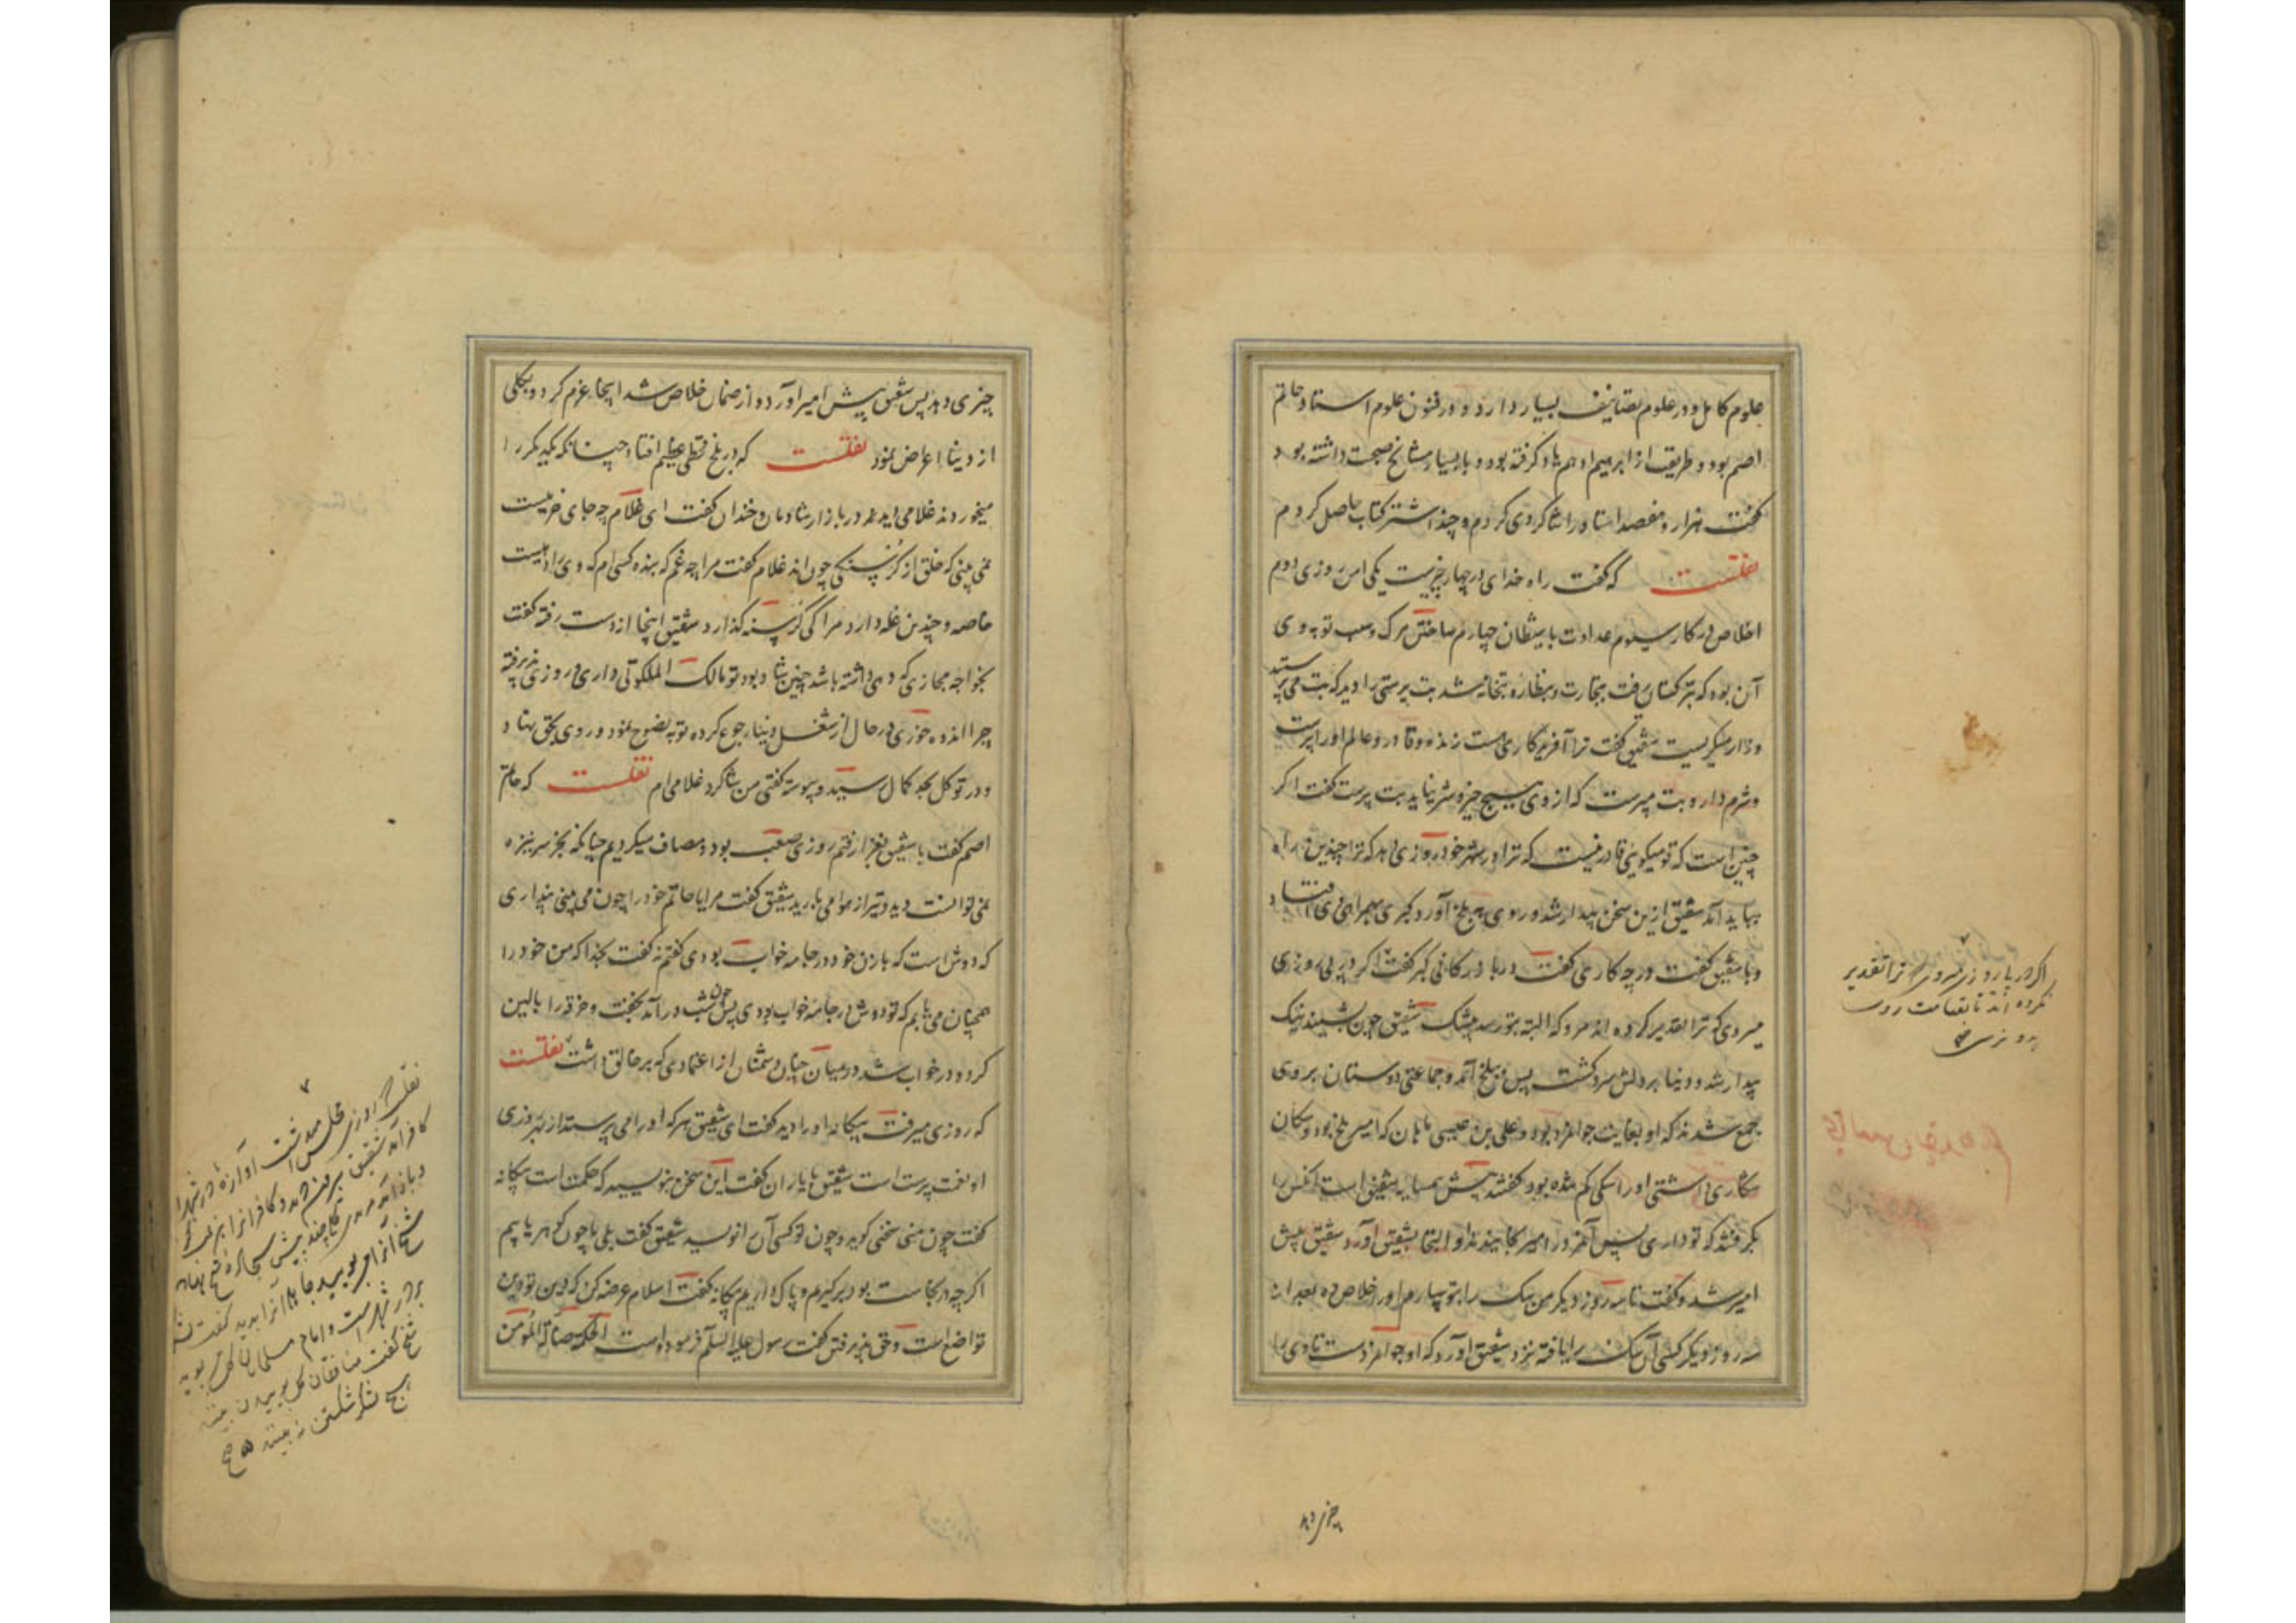 علوم کامل و در علوم تصانیف بسیار دارد و در فنون علوم استاد حاتم
اصم بود و طریقت از ابرهیم ادهم یاد کرفته بود و با بسیار مشایخ صحبت داشته بود و
کفت هزار و هفصد استاد را شاکردی کردم و چند اشتر کتاب حاصل کردم
نقلست که کفت راه خدای در چهار چیزست یکی امن روزی دوم
اخلاص در کار سیوم عداوت با شیطان چهارم ساختن مرک و سبب توبه وی
آن بود که بترکستان رفت بتجارت و بنظاره بتخانه شد بت پرستی را دید که بت می پرستید
و زار میکریست شقیق کفت ترا آفریدکاری هست زنده و قادر و عالم او را پرست
و شرم دار و بت مپرست که از وی هیچ خیر و شر نیاید بت پرست کفت اکر
چنین است که تو میکویی قادر نیست که ترا در شهر خود روزی دهد که ترا چندین راه
بباید آمد شقیق ازین سخن بیدار شد و روی ببلخ آورد کبری بهمراهی وی افتاد
و با شقیق کفت در چه کاری کفت در بازرکانی کبر کفت اکر در پی روزی
میروی که ترا تقدیر کرده اند مرو که البته بتو رسد بیشک شقیق چون بشنید نیک
بیدار شد و دنیا بر دلش سرد کشت پس ببلخ آمد و جماعتی دوستان بر وی
جمع شدند که او بغایت جوامرد بود و علی بن عیسی ماهان که امیر بلخ بود و سکان
شکاری داشتی او را سکی کم شده بود کفتند پیش همسایه شقیق است آنکس را
بکرفتند که تو داری پس آمدند و از امیر میرنجانیدند او التجا بشقیق آورد شقیق پیش
امیر شد و کفت تا سه روز دیکر من سک را بتو سپارم او را خلاص ده بعد از
سه روز دیکر کسی آن سک را یافته نزد شقیق آورد که او جوامردست تا وی را
اکر در پی روزی میروی که ترا تقدیر
نکرده اند تا بقیامت روی
بدو نرسی
چیزی دهد
چیزی دهد پس شقیق پیش امیر آورد و از ضمان خلاص شد اینجا عزم کرد و بکلی
از دنیا اعراض نمود نقلست که در بلخ قحطی عظیم افتاد چنانکه یکدیکر را
میخوردند غلامی دیدند در بازار شادمان و خندان کفت ای غلام چه جای خرمیست
نمی بینی که خلق از کرسنکی چون اند غلام کفت مرا چه غم که بنده کسی ام که وی را دهیست
خاصه و چندین غله دارد مرا کی کرسنه کذارد شقیق اینجا از دست رفته کفت
بخواجه مجازی که دهی داشته باشد چنین شاد بود تو مالک الملکوتی داری و روزی پذیرفته
چرا اندوه خوری در حال از شغل دنیا رجوع کرده توبه نصوح نمود و روی بحق نهاد
و در توکل بحد کمال رسید و پیوسته کفتی من شاکرد غلامی ام نقلست که حاتم
اصم کفت با شقیق بغزا رفتم روزی صعب بود و مصاف میکردیم چنانکه بجز سر نیزه
نمی توانست دید و تیر از هوا می بارید شقیق کفت مرا یا حاتم خود را چون می بینی پنداری
که دوش است که با زن خود در جامه خواب بودی کفتم نه کفت بخدا که من خود را
همچنان می یابم که تو دوش در جامه خواب بودی پس چون شب در آمد بخفت و خرقه را بالین
کرد و در خواب شد در میان چنان دشمنان از اعتمادی که بر خالق داشت نقلست
که روزی میرفت بیکانه او را دید کفت ای شقیق هر که او را می پرستد از بهر روزی
او نعمت پرست است شقیق با یاران کفت این سخن بنویسید که حکمت است بیکانه
کفت چون منی سخنی کوید و چون تو کسی آن را نویسد شقیق کفت بلی ما چون کوهر یابیم
اکرچه در نجاست بود برکیریم و پاک داریم بیکانه کفت اسلام عرضه کن که دین تو دین
تواضع است و حق پذیرفتن کفت رسول علیه السلم فرموده است الحکمة ضالة المؤمن
نقلست که روزی مجلس میداشت آوازه در شهر افتاد
کافر آمد شقیق برون دوید و کافران را هزیمت کرد
و باز آمد مریدی کلی چند پیش سجاده شیخ نهاد
شیخ آنرا می بویید جاهلی آنرا بدید کفت لشکر
بر در شهر است و امام مسلمانان کل می بوید
شیخ کفت منافقان کل بوییدن بینند
هیچ لشکر شکستن نبینند